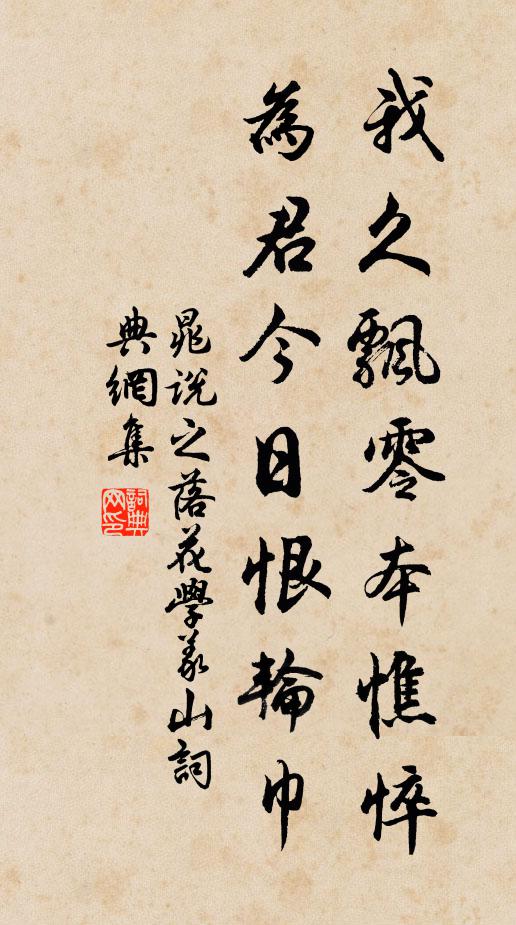 我久飄零本憔悴
為君今日恨輪巾
晁說之落花學義山詞
典網集
詞典網印